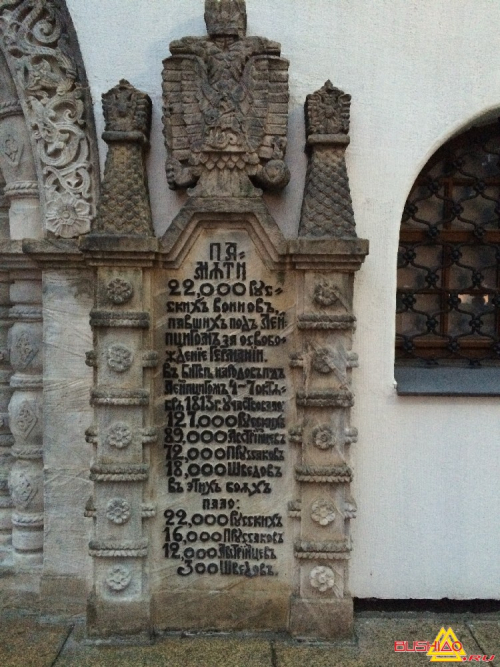 ПА-
МѦТИ
22,000 РУС-
СКИХЪ ВОИНОВЪ,
ПАВШИХЪ ПОДЪ ЛЕЙ-
ПЦИГОМЪ ЗА ОСВОБО-
ЖДЕНІЕ ГЕРМАНІИ.
ВЪ БИТВѢ НАРОДОВЪ ПОДЪ
ЛЕЙПЦИГОМЪ 4–7 ОКТѦ-
БРѦ 1813 Г. УЧАСТВОВАЛО:
127,000 РУССКИХЪ
89,000 АВСТРІЙЦЕВЪ
72,000 ПРУССАКОВЪ
18,000 ШВЕДОВЪ
ВЪ ЭТИХЪ БОЯХЪ
ПАЛО:
22,000 РУССКИХЪ
16,000 ПРУССАКОВЪ
12,000 АВСТРІЙЦЕВЪ
300 ШВЕДОВЪ.
BUSHIDO